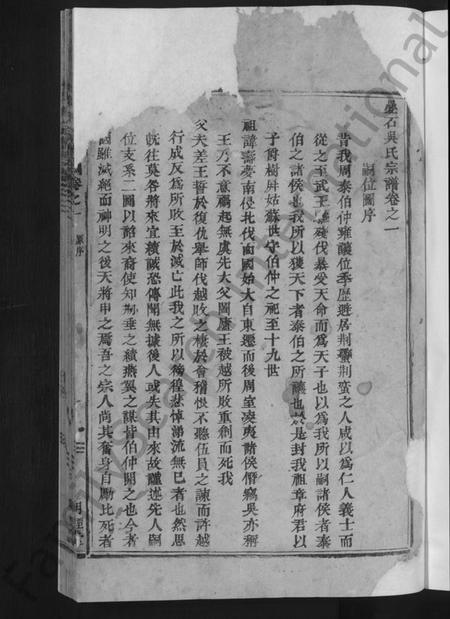 壘石吳氏宗譜卷之一
嗣位圖序
昔我周泰伯仲雍讓位季歷避居荆蠻荆蛮之人咸以為仁人義士而
從之至武王誅殘伐暴受天命而為天子也以為我所以嗣諸侯者泰
伯之諸侯也我所以獲天下者泰伯之所讓也於是封我祖章府君以
子爵樹屏姑蘇世守伯仲之祀至十九世
祖諱壽夢南侵北伐而國始大自東遷而後周室凌夷諸侯僭竊吳亦稱
王乃不意禍起無虞先大父闔廬王被越所敗重創而死我
父夫差王誓於復仇舉師伐越敗之棲於會稽恨不聽伍員之諫而許越
行成反為所敗至於滅亡此我之所以徬徨悲悼涕流無已者也然思
既往莫咎將來宜續誠恐傳聞無據後人或失其由來故謹述先人嗣
位支系二圖以詔來裔使知垂之績燕翼之謀皆伯仲開之也今者
國雖滅絕而神明之後天將申之焉吾之宗人尚其奮身自勵比死者
卷之一
原序
Family Search International